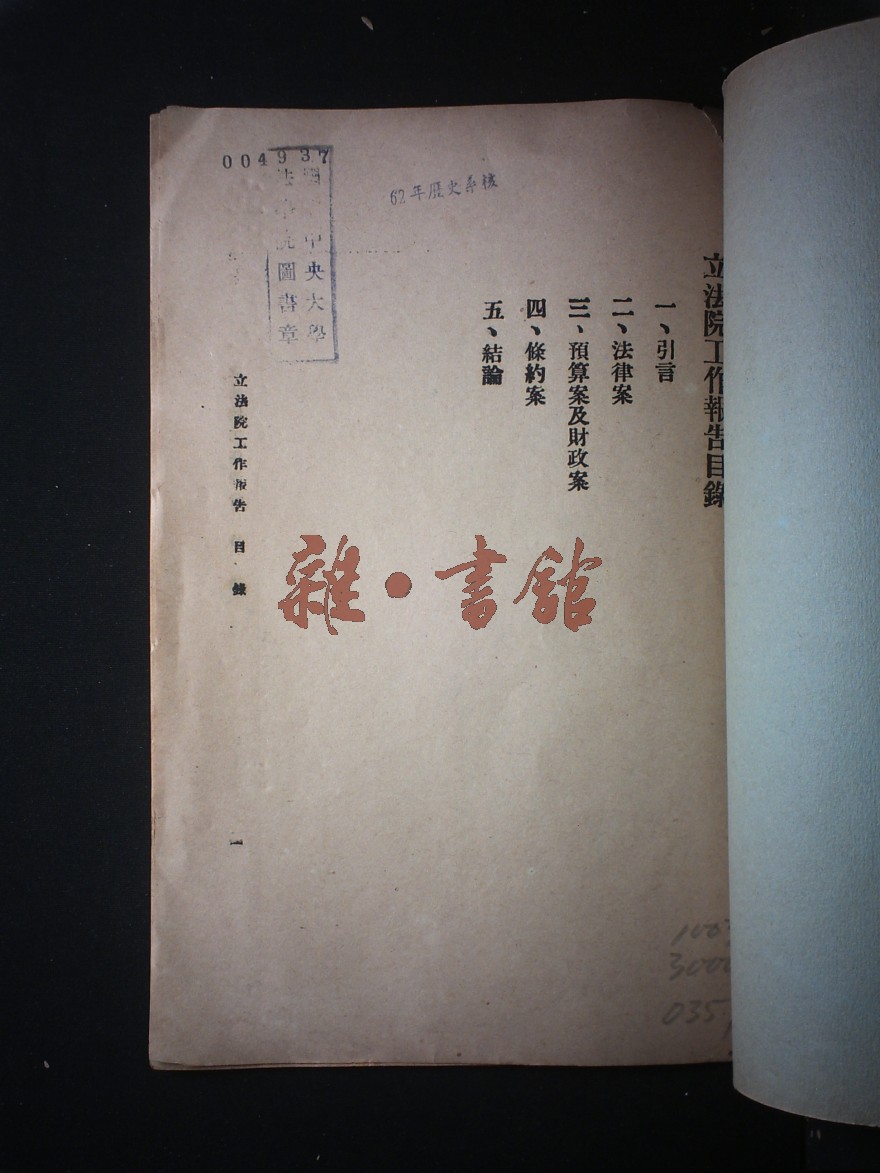 立法院工作報告目錄
一、引言
二、法律案
三、預算案及財政案
四、條約案
五、結論
62年歷史系核
004937
中央大學
法學院圖書章
立法院工作報告 目錄
一
雜·書館
3000
035